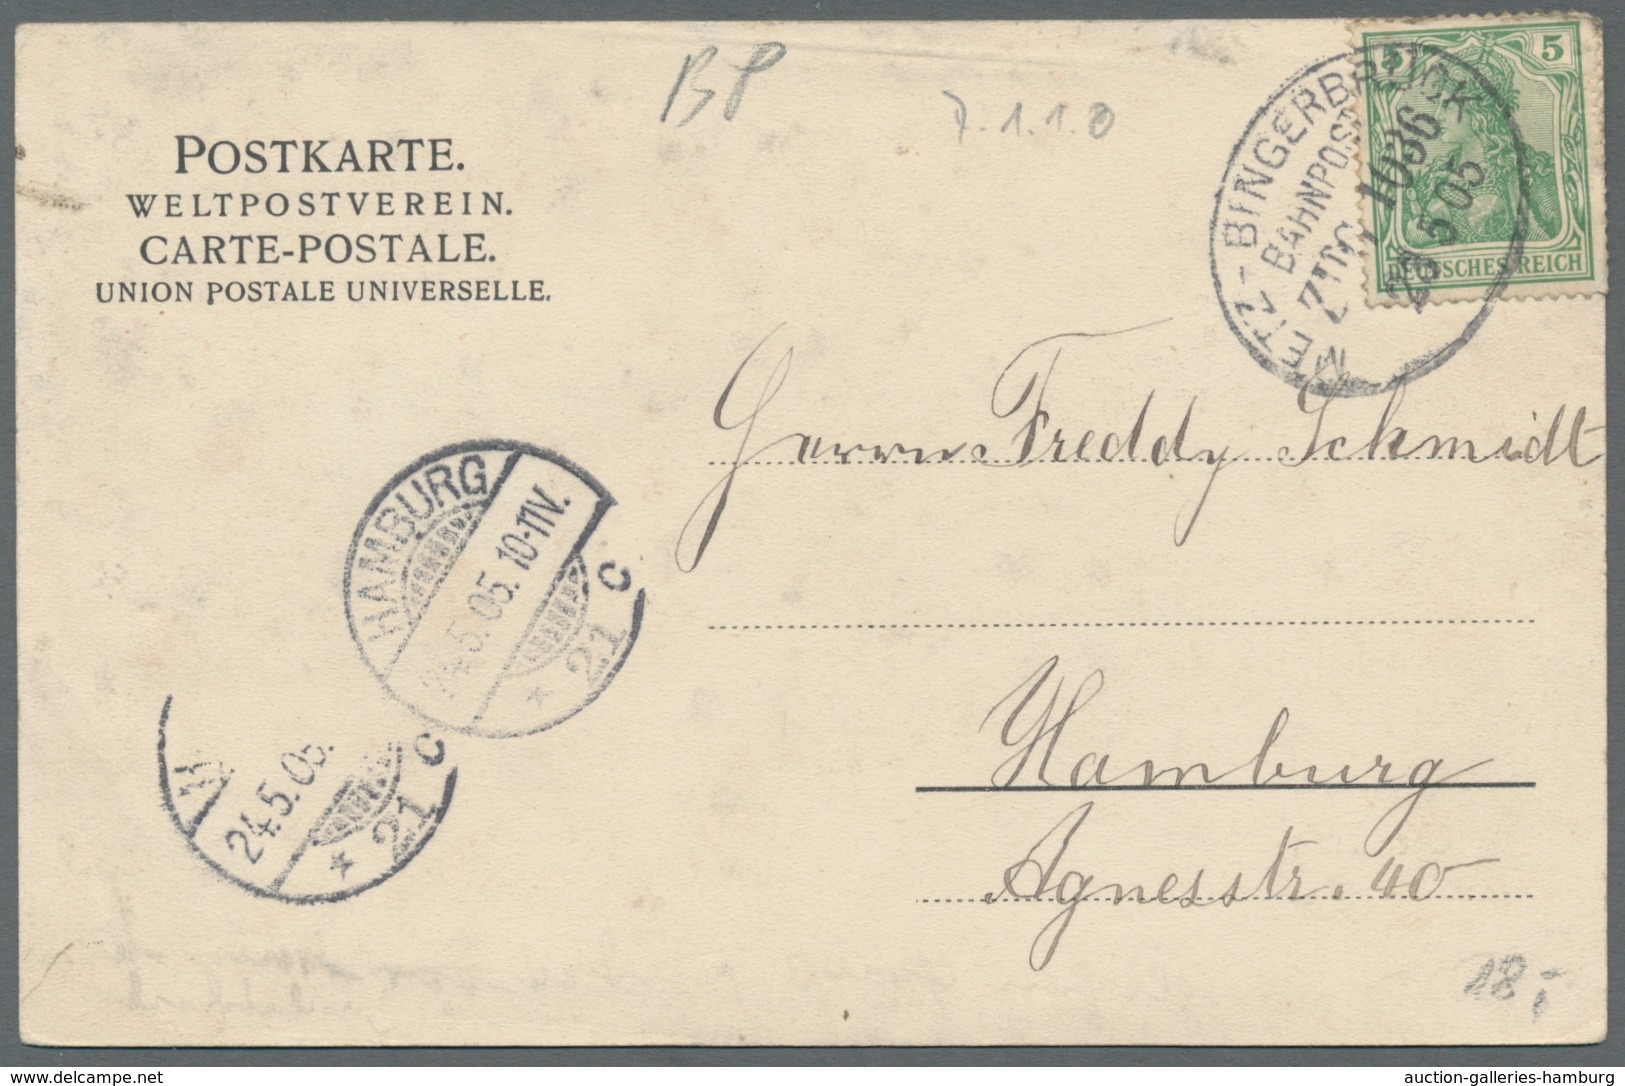 BP
7.1.1.0
POSTKARTE.
WELTPOSTVEREIN.
CARTE-POSTALE.
UNION POSTALE UNIVERSELLE.
5 5
DEUTSCHES REICH
METZ-BINGERBRÜCK
BAHNPOST
ZUG 1036
23 5 05
Herrn Freddy Schmidt
Hamburg
Agnesstr. 40
HAMBURG
24.5.05. 10-11V.
* 21 c
24.5.05.
* 21 c
18
delcampe.net
auction-galleries-hamburg